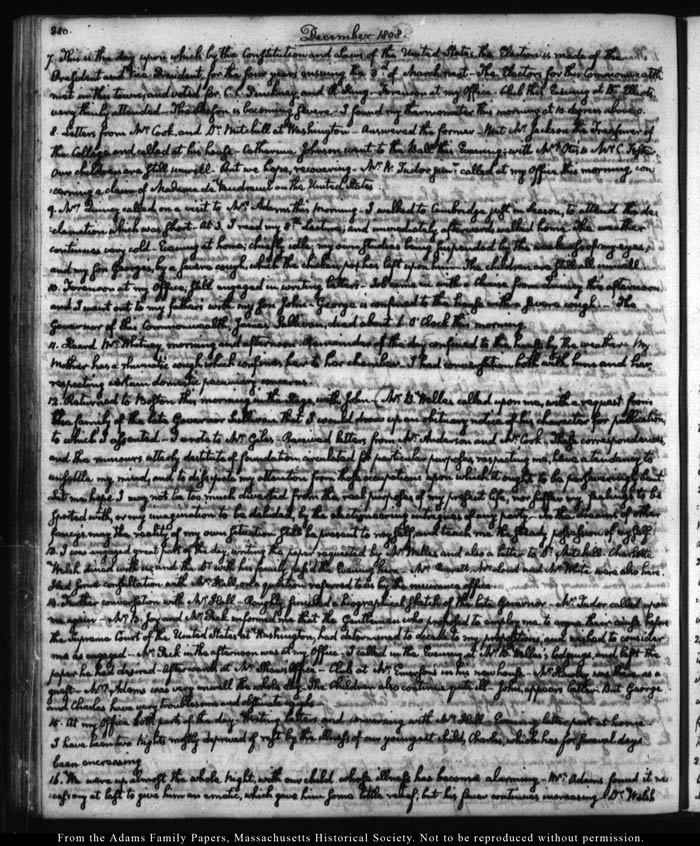 380.
December 1808.
7. This is the day upon which by the Constitution and Laws of the United States, the Election is made of the
President and Vice-President, for the four years ensuing the 3d. of March next. The Electors for this Commonwealth
met in this town, and voted for C. C. Pinckney, and R. King. Forenoon at my Office. Club this Evening at Dr. Eliot's,
very thinly attended. The season is becoming severe. I found my thermometer this morning at 10 degrees above 0.
8. Letters from Mr. Cook, and Dr. Mitchell at Washington. Answered the former. Met Mr. Jackson the Treasurer of
the College and called at his house. Catherine Johnson went to the Ball this Evening; with Mrs. Otis & Mrs. C. Foster.
Our children are still unwell. But we hope, recovering. Mr. W. Tudor junr. called at my Office this morning con-
cerning a claim of Madame de Vaudreuil on the United States.
9. Mrs. Quincy called on a visit to Mrs. Adams this morning. I walked to Cambridge just in season, to attend the de-
clamation which was short. At 3, I read my 8th. Lecture; and immediately afterwards walked home. The weather
continues very cold. Evening at home; chiefly idle; my own Studies being suspended by the weakness of my eyes,
and my Son George's, by a severe cough, which the chicken pox has left upon him. The children are still all unwell.
10. Forenoon at my Office, still engaged in writing letters. Job came in with a chaise from Quincy this afternoon
and I went out to my father's with my Son John. George is confined to the house with a severe cough. The
Governor of this Commonwealth, James Sullivan, died about O'Clock this morning.
11. Heard Mr. Whitney, morning and afternoon. Remainder of the day confined to the house by the weather. My
Mother has a rheumatic cough which confines her to her chamber. I had conversation both with him and her,
respecting certain domestic pecuniary concerns.
12. Returned to Boston this morning in the Stage, with John. Mr. B. Welles called upon me, with a request from
the family of the late Governor Sullivan that I would draw up an obituary notice of his character for publication,
to which I assented. I wrote to Mr. Giles. Received letters from Mr. Anderson and Mr. Cook. These correspondences,
and the rumours utterly destitute of foundation circulated for particular purposes respecting me, have a tendency to
unsettle my mind, and to dissipate my attention from those occupations upon which it ought to be perseveringly bent.
Let me hope I may not be too much diverted from the real purposes of my present life, nor suffer my feelings to be
sported with, or my imagination to be deluded, by the electioneering intrigues of any party. In the dreams of other
fancies, may the reality of my own situation still be present to myself, and teach me the steady possession of myself.
13. I was engaged great part of the day, writing the paper requested by Mr. Welles and also a letter to Dr. Mitchell. Charlotte
Welsh dined with us, and the Dr. with his family, pass'd the Evening here. Mr. Everett, Mr. and Mr. White were also here.
Had some consultation with Mr. Hall, on a question referred to us by the insurance office.
14. Further conversation with Mr. Hall. Roughly finished a biographical Sketch of the late Governor. Mr. Tudor called upon
me again. Mr. B. Joy and Mr. Peck informed me that the Gentlemen who proposed to employ me to argue their cause before
the Supreme Court of the United States at Washington, had determined to accede to my propositions, and wished to consider
me as engaged. Mr. Peck in the afternoon was at my Office. I called in the Evening at Mr. B. Welles's, lodgings, and left the
paper he had desired. Afterwards at Mr. Shaw's Office. Club at Mr. Emerson's in his new house. Mr. was there as a
guest. Mrs. Adams was very unwell the whole day. The Children also continue quite ill. John, appears better. But George
and Charles have very troublesome and obstinate coughs.
15. At my Office both parts of the day. Writing letters and conversing with Mr. Hall. Evening late part at home.
I have been two nights mostly deprived of rest by the illness of our youngest child, Charles, which has for several days
been increasing.
16. We were up almost the whole night, with our child, whose illness has become alarming. Mrs. Adams found it ne-
cessary at last to give him an emetic, which gave him some little relief, but his fever continues increasing. Dr. Welsh
From the Adams Family Papers, Massachusetts Historical Society. Not to be reproduced without permission.